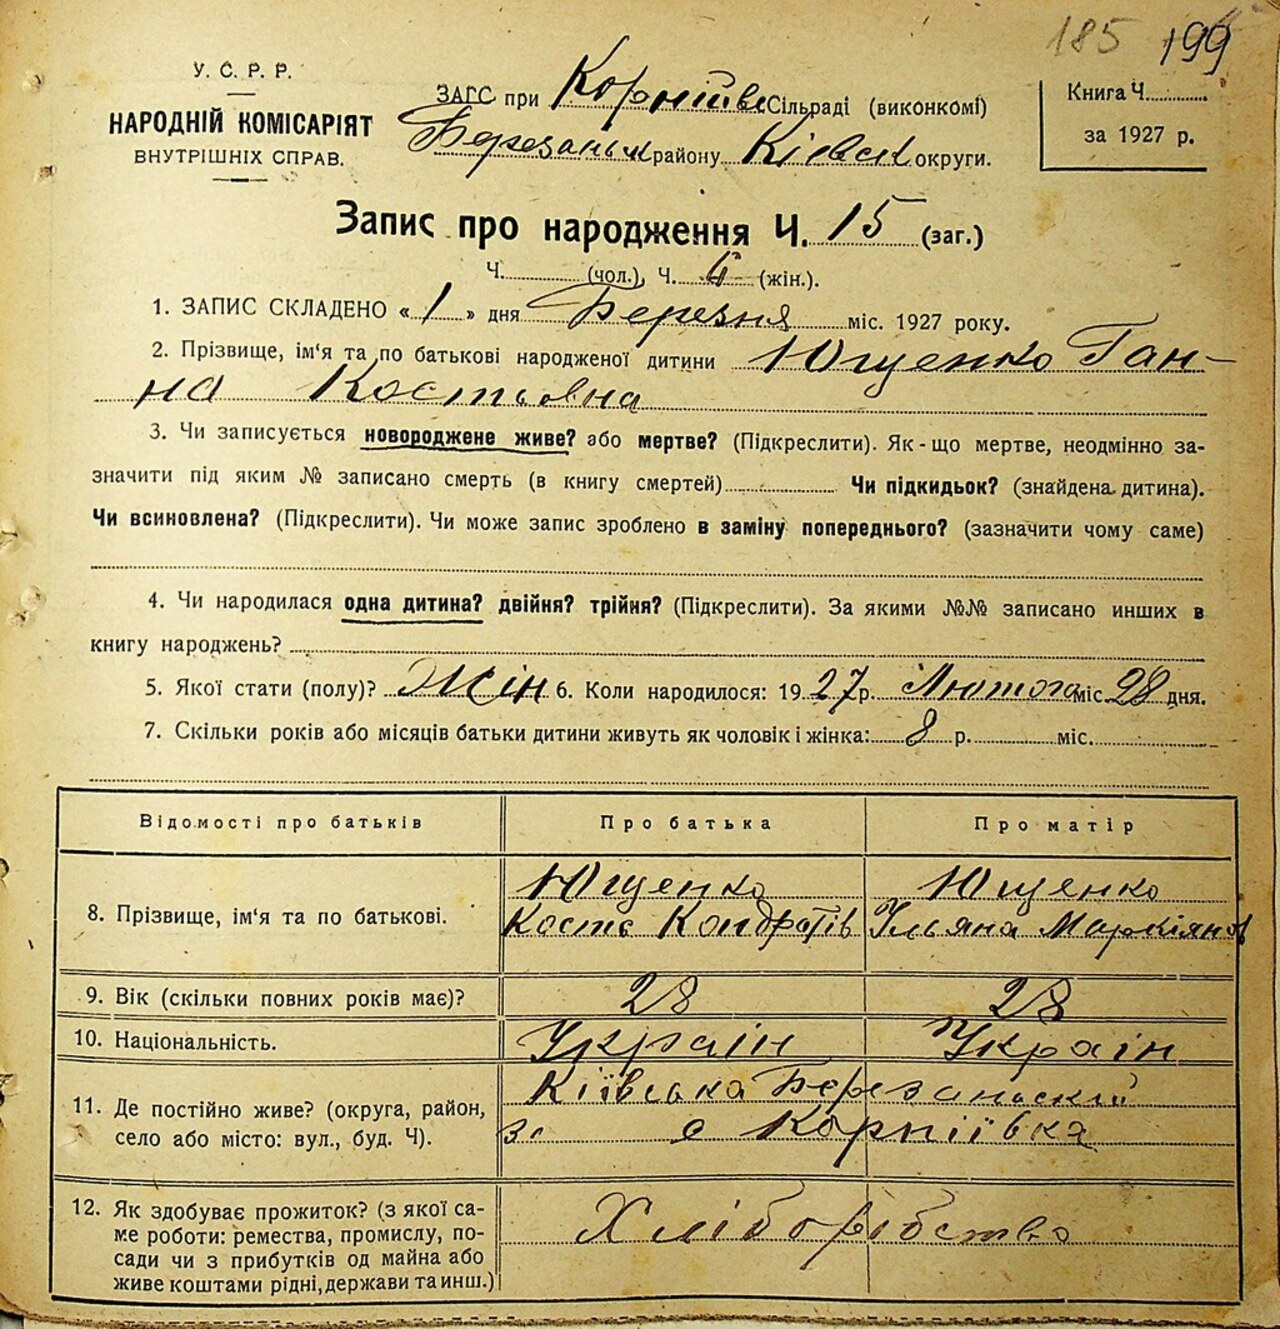 185 199
У. С. Р. Р.
НАРОДНІЙ КОМІСАРІЯТ
ВНУТРІШНІХ СПРАВ.
ЗАГС при Корнійвс Сільраді (виконкомі)
Березаньск району Кієвск округи.
Книга Ч.
за 1927 р.
Запис про народження Ч. 15 (заг.)
Ч. (чол.), Ч. 6 (жін.).
1. ЗАПИС СКЛАДЕНО « 1 » дня Березня міс. 1927 року.
2. Прізвище, ім'я та по батькові народженої дитини Ющенко Ган-
на Костьовна
3. Чи записується новороджене живе? або мертве? (Підкреслити). Як-що мертве, неодмінно за-
значити під яким № записано смерть (в книгу смертей) Чи підкидьок? (знайдена дитина).
Чи всиновлена? (Підкреслити). Чи може запис зроблено в заміну попереднього? (зазначити чому саме)
4. Чи народилася одна дитина? двійня? трійня? (Підкреслити). За якими №№ записано инших в
книгу народжень?
5. Якої стати (полу)? Жін 6. Коли народилося: 1927 р. Лютого міс. 28 дня.
7. Скільки років або місяців батьки дитини живуть як чоловік і жінка: 8 р. міс.
Відомості про батьків Про батька Про матір
8. Прізвище, ім'я та по батькові.
Ющенко
Кость Кондратів
Ющенко
Ульяна Маркіянов
9. Вік (скільки повних років має)? 28 28
10. Національність. Україн Україн
11. Де постійно живе? (округа, район,
село або місто: вул., буд. Ч).
Київська Березанський
с Корніївка
12. Як здобуває прожиток? (з якої са-
ме роботи: ремества, промислу, по-
сади чи з прибутків од майна або
живе коштами рідні, держави та инш.)
Хліборобство